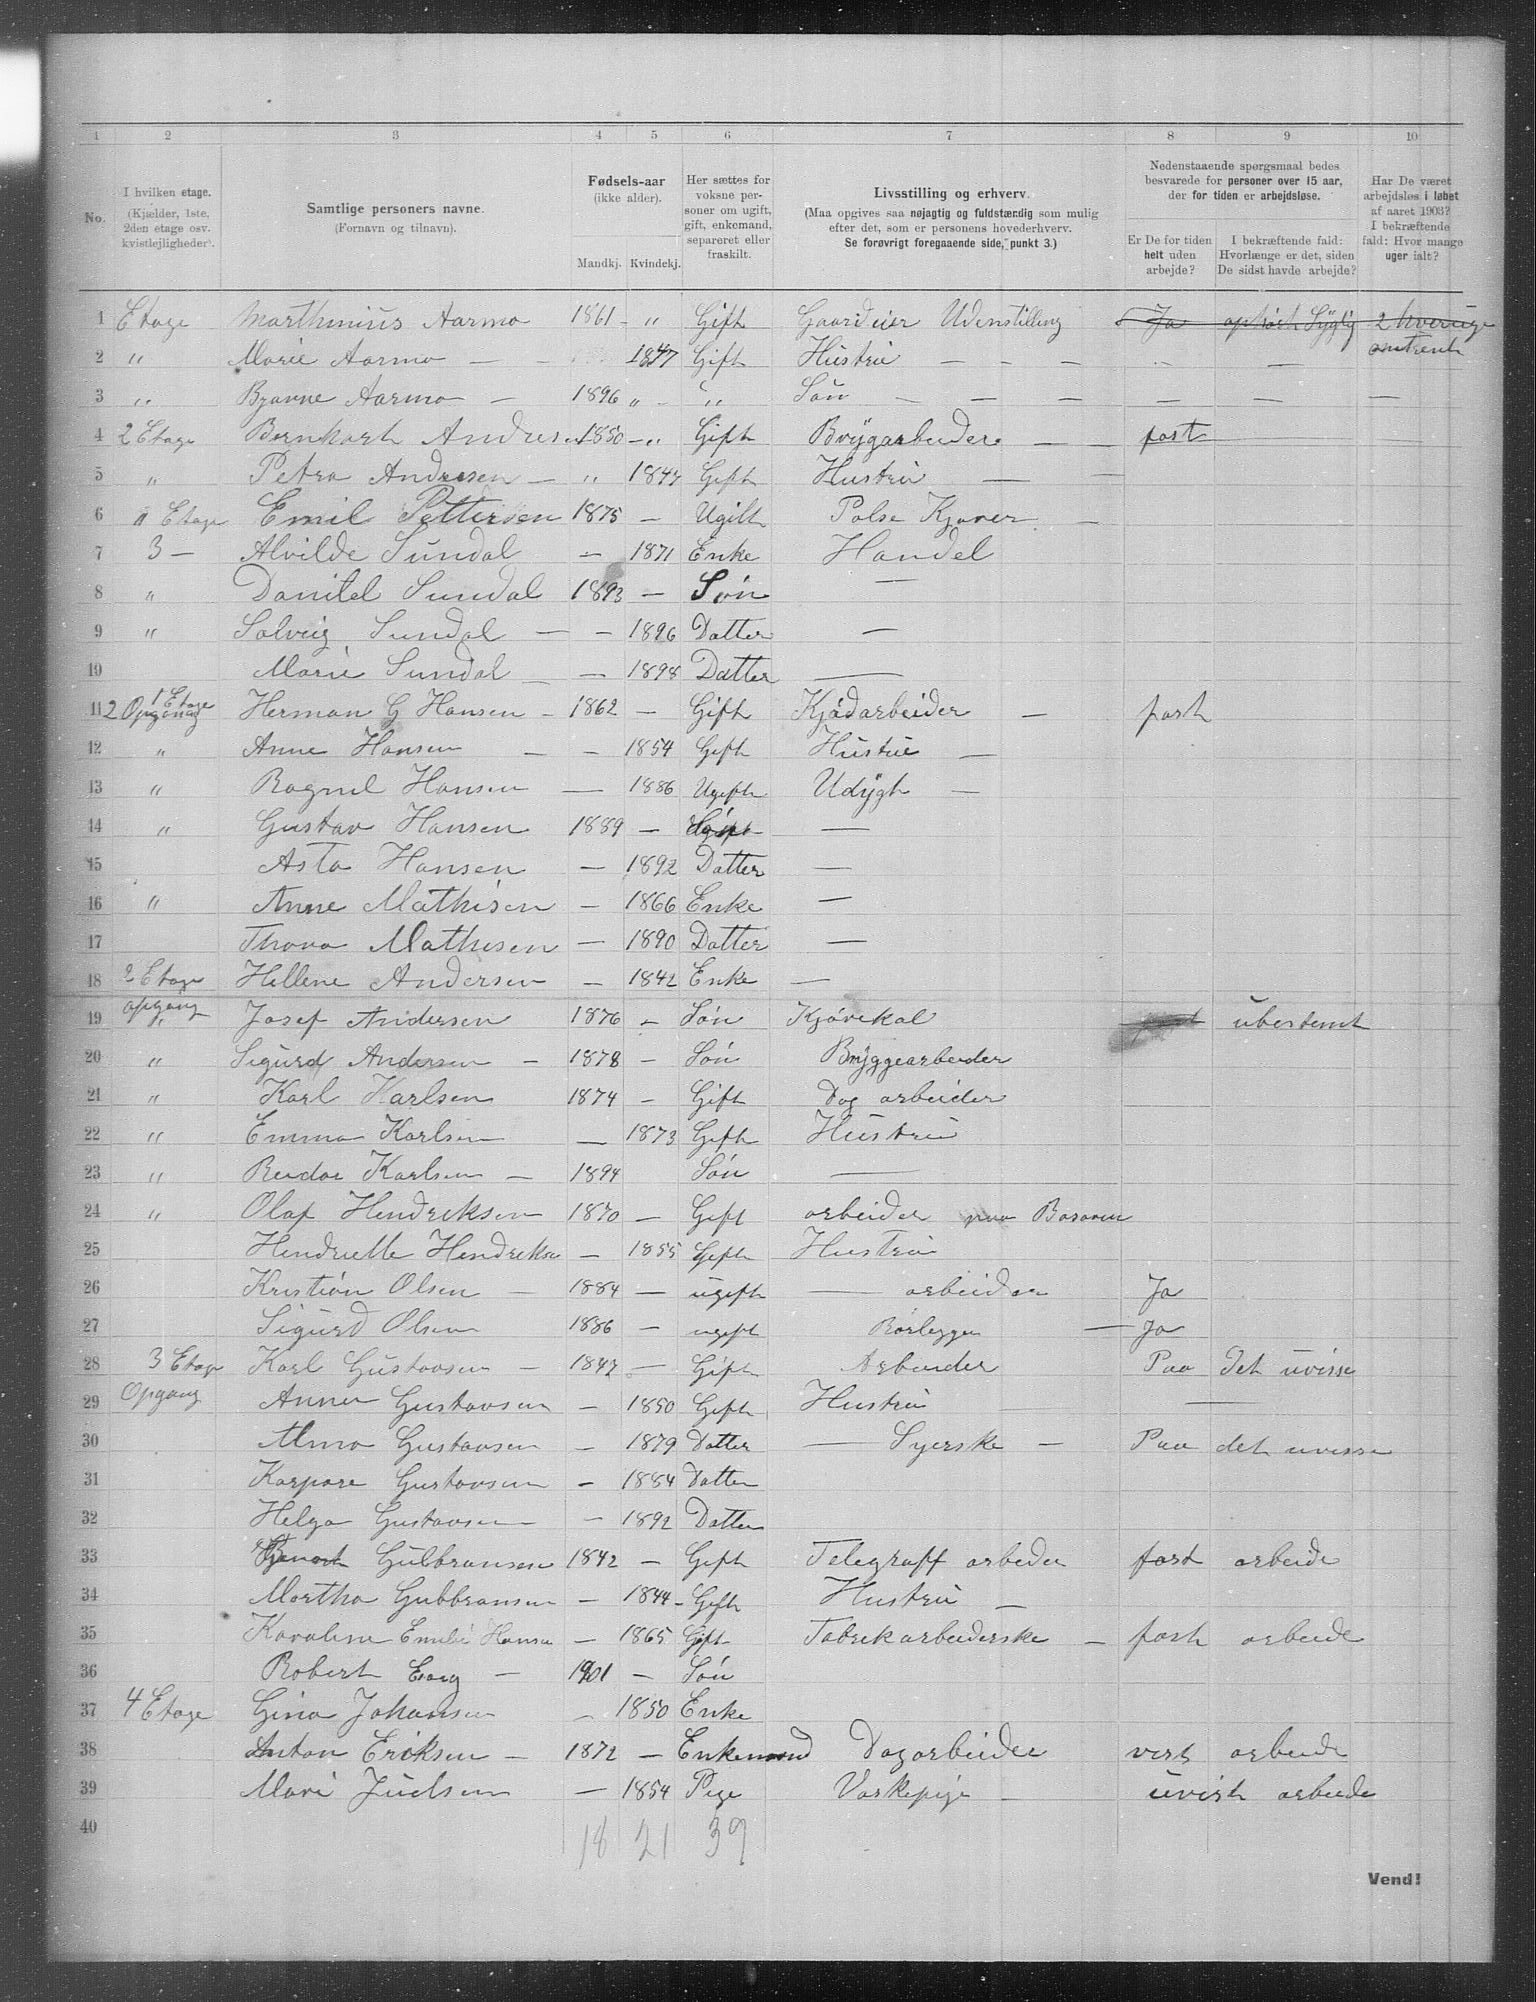 1 2 3 4 5 6 7 8 9 10
No.
I hvilken etage.
(Kjælder, 1ste,
2den etage osv.
kvistlejligheder).
Samtlige personers navne.
(Fornavn og tilnavn).
Fødsels-aar
(ikke alder).
Mandkj. Kvindekj.
Her sættes for
voksne per-
soner om ugift,
gift, enkemand,
separeret eller
fraskilt.
Livsstilling og erhverv.
(Maa opgives saa nøjagtig og fuldstændig som mulig
efter det, som er personens hovederhverv.
Se forøvrigt foregaaende side, punkt 3.)
Nedenstaaende spørgsmaal bedes
besvarede for personer over 15 aar,
der for tiden er arbejdsløse.
Er De for tiden
helt uden
arbejde?
I bekræftende fald:
Hvorlænge er det, siden
De sidst havde arbejde?
Har De været
arbejdsløs i løbet
af aaret 1903?
I bekræftende
fald: Hvor mange
uger ialt?
1 Etage Marthinius Aarmo 1861 - " Gift Gaardeier Udenstilling Ja ophørt Syglig 2
2 " Marie Aarmo - 1847 Gift Hustru - - - omtrent
3 " Bjarne Aarmo - 1896 " - " Søn - - - - - -
4 2 Etage Bernhart Andresen 1850 - " Gift Bryggarbeider - fast
5 " Petra Andresen - " 1847 Gift Hustru - -
6 " Etage Emil Pettersen 1875 - Ugift Polse Kjører -
7 3 - Alvilde Sundal - 1871 Enke Handel
8 " Danilel Sundal 1893 - Søn -
9 " Solveig Sundal - - 1896 Datter -
10 Marie Sundal - - 1898 Datter -
11 2 Opgang 1 Etage Herman G Hansen - 1862 - Gift Kjødarbeider - fast
12 " Anne Hansen - - 1854 Gift Hustru -
13 " Ragnil Hansen - 1886 Ugift Udygt -
14 " Gustav Hansen 1889 - Ugift -
15 Asta Hansen - 1892 Datter -
16 " Anne Mathisen - 1866 Enke -
17 Thora Mathisen - 1890 Datter -
18 2 Etage Hellene Andersen - 1842 Enke -
19 opgang " Josef Andersen 1876 - Søn Kjørekal fast ubestemt
20 " Sigurd Andersen - 1878 - Søn Bryggearbeider
21 " Karl Karlsen 1874 - Gift Dag arbeider
22 " Emma Karlsen - 1873 Gift Hustru
23 " Reidar Karlsen - 1894 Søn -
24 " Olaf Hendriksen 1870 - Gift arbeider paa Basaren
25 Hendrielle Hendriksen - 1855 Gift Hustru
26 Kristian Olsen - 1884 - ugift - arbeider Ja
27 Sigurd Olsen 1886 - ugift Rørlegger - Ja
28 3 Etage Karl Gustavsen - 1847 - Gift Arbeider Paa det uvisse
29 Opgang Anna Gustavsen - 1850 Gift Hustru - -
30 Alma Gustavsen - 1879 Datter - Syerske - Paa det uvisse
31 Gustavsen - 1884 Datter
32 Helga Gustavsen - 1892 Datter
33 Gulbransen 1842 - Gift Telegraff arbeder fast arbeide
34 Martha Gulbbransen - 1844 - Gift Hustru -
35 Karoline Emilie Hansen - 1865 Gift Fabrekarbeiderske - fast arbeide
36 Robert Georg - 1901 - Søn
37 4 Etage Gina Johansen - 1850 Enke
38 Anton Eriksen - 1872 - Enkemand Dagarbeider vist arbeide
39 Mari Juelsen - 1854 Pige Vaskepige - uvist arbeide
40
18 21 39
Vend!